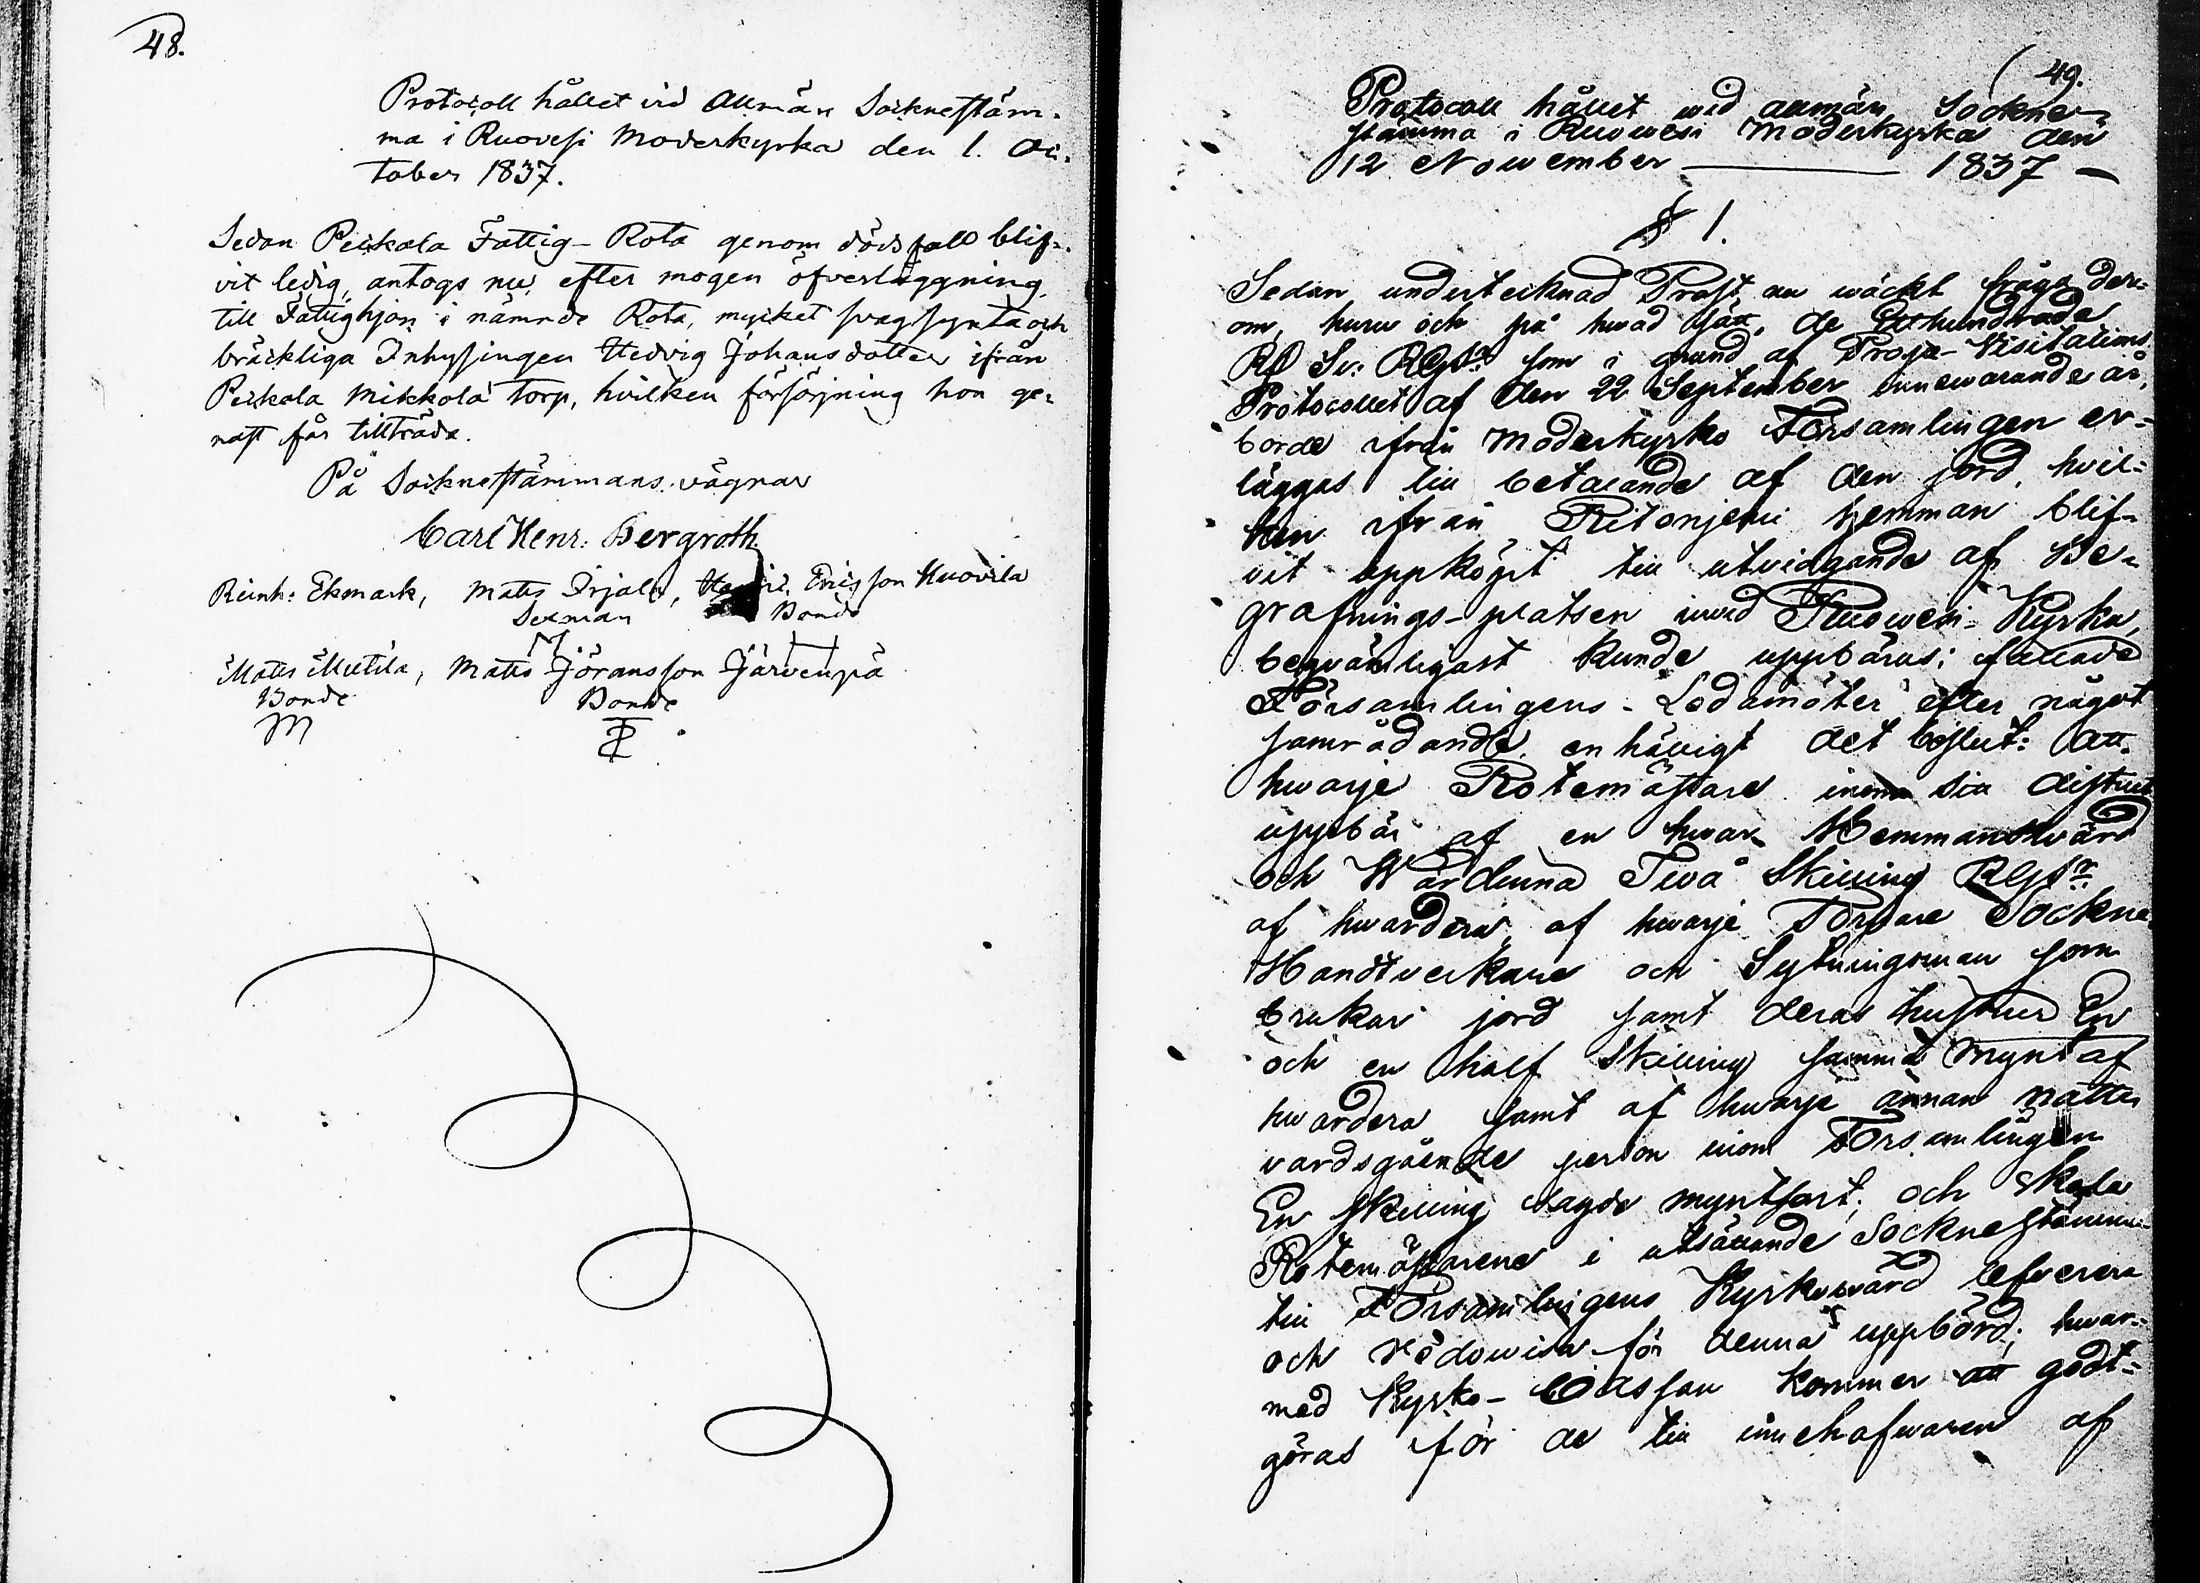 48.
Protocoll hållet vid Allmän Sockneständ-
ma i Ruovesi Moderkyrka den 1. Oc-
tober 1837.
Sedan Pekkala Fattig-Rota genom dödsfall blif-
vit ledig, antogs nu, efter mogen öfverläggning,
till Fattighjon i nämnde Rota, mycket svagsynta och
bräckliga Inhysingen Hedvig Johansdotter ifrån
Pekkala Mikkola Torp, hvilken försörjning hon ge-
nast får tillträda.
På Socknestämmans vägnar
Carl Henr: Bergroth.
Reinh: Ekmark, Matts Irjala, Henric Ericsson Kuovila
Sexman Bonde
Matts Mutila, Matts Jöransson Järvenpä
Bonde Bonde
M
49.
Protocoll hållet wid allmän Sockne-
stämma i Ruowesi Moderkyrka den
12 November 1837
§ 1.
Sedan undertecknad Prost nu wäckt fråga der-
om, huru och på hwad sätt, de Etthundrade
RD Sv: Rgs: som i grund af Prosts-Visitations
Protocollet af den 22 September innewarande år,
borde ifrån Moderkyrko Församlingen er-
läggas till betalande af den jord, hvil-
ken ifrån Ritoniemi hemman blif-
vit uppköpt till utvidgande af Be-
grafnings-platsen invid Ruowesi Kyrka,
beqvämligast kunde uppbäras; fattade
Församlingens Ledamöter efter något
samrådande, enhälligt det beslut: att
hwarje Rotemästare inom sin district
uppbär af en hwar Hemmanswärd
och Wärdinna Twå Skilling Rgs:
af hwardera, af hwarje Torpare Sockne
Handtverkare och Sytningsman som
brukar jord samt deras hustrur En
och en half Skilling samma Mynt af
hwardera samt af hwarje annan natte
vardsgående person inom Församlingen
En Skilling sagde myntsort; och skola
Rotemästarene i utsättande Socknestämma
till Församlingens Kyrkowärd lefverera
och redowisa för denna uppbörd; hwar-
med Kyrko-Cassan kommer att godt-
göras för de till innehafwaren af